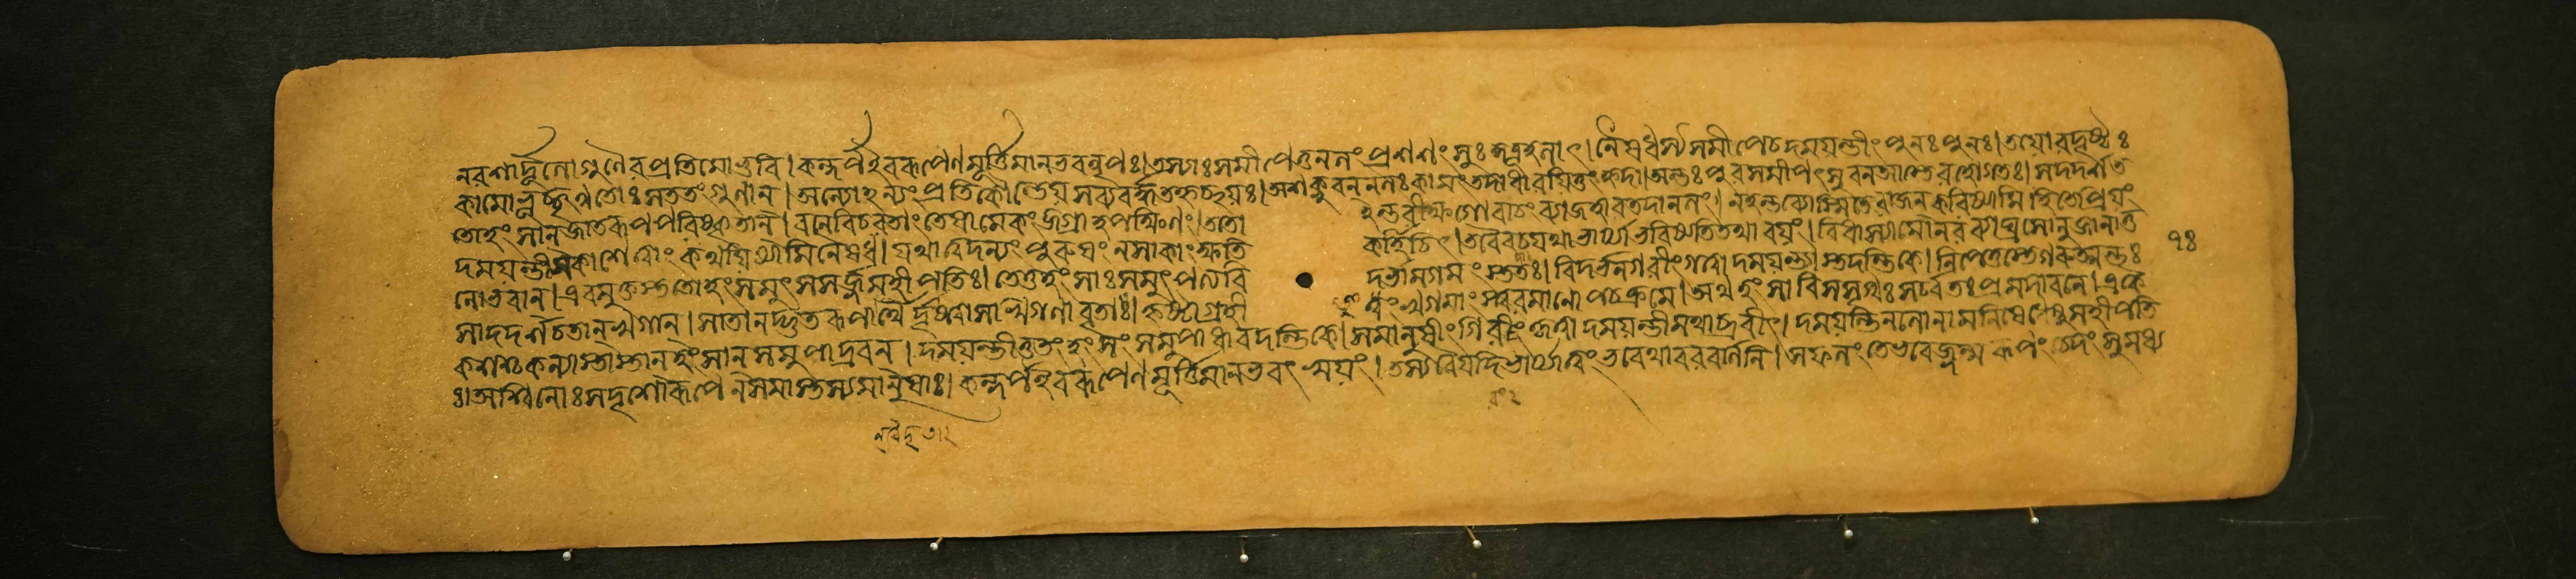 নরশার্দ্দূলোগুণৈরপ্রতিমোভুবি।কন্দর্পইবরূপেণমূর্ত্তিমানভবন্নৃপঃ।তস্যাঃসমীপেতুনলংপ্রশশংসুঃকুতূহলাৎ।নৈষধস্যসমীপেচদময়ন্তীংপুনঃপুনঃ।তয়োরদৃষ্টঃ
কামোভূচ্ছৃণ্বতোঃসততংগুণান্।অন্যোহন্যংপ্রতিকৌন্তেয়সব্যবর্দ্ধতহৃচ্ছয়ঃ।অশক্নুবন্নলঃকামংতদাধারয়িতুংহৃদা।অন্তঃপুরসমীপস্থবনআস্তেরহোগতঃ।সদদর্শত
তোহংসান্জাতরূপপরিষ্কৃতান্।বনেবিচরতাংতেষামেকংজগ্রাহপক্ষিণং।ততো হন্তরীক্ষগোবাচংব্যাজহারতদানলং।নহন্তব্যোস্মিতেরাজন্করিষ্যামিহিতেপ্রিয়ং
দময়ন্তীসকাশেত্বাংকথয়িষ্যামিনৈষধ।যথাত্বদন্যংপুরুষংনসাকাংক্ষতি কর্হিচিৎ।তবৈবচযথাভার্য্যাভবিষ্যতিতথাবয়ং।বিধাস্যামোনরব্যাঘ্রসোনুজানাতু ১৪
নোভবান্।এবমুক্তস্ততোহংসমুৎসসর্জ্জমহীপতিঃ।তেতুহংসাঃসমুৎপত্যবি দর্ভানগমংস্ততঃ।বিদর্ভনগরীংগত্বাদময়ন্ত্যাস্তদন্তিকে।নিপেতুস্তেগরুত্মন্তঃ
সাদদর্শচতান্খগান্।সাতানদ্ভুতরূপান্বৈদৃষ্ট্বাসাসখিগণাবৃতা।হৃষ্টাগ্রহী তুংখগমাংস্ত্বরমাণোপচক্রমে।অথহংসাবিসসৃপুঃসর্ব্বতঃপ্রমদাবনে।একৈ
কশঃকন্যাস্তাস্তান্হংসান্সমুপাদ্রবন্।দময়ন্তীতুতংহংসংসমুপাধাবদন্তিকে।সমানুষীংগিরংকৃত্বাদময়ন্তীমথাব্রবীৎ।দময়ন্তিনলোনামনিষধেষুমহীপতি
ঃ।অশ্বিনোঃসদৃশোরূপেনসমাস্তস্যমানুষাঃ।কন্দর্পইবরূপেণমূর্ত্তিমানভবৎস্বয়ং।তস্যবৈযদিভার্য্যাত্বংভবেথাবরবর্ণিনি।সফলংতেভবেজ্জন্মরূপংচেদংসুমধ্য